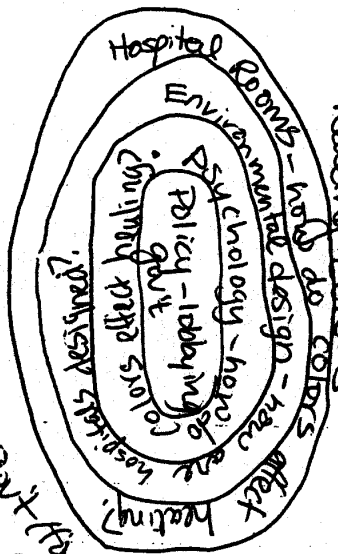 Hospital Rooms - how do colors affect healing?
Environmental design - how are hospitals designed?
Psychology - how do colors effect healing?
Policy - lobbying
gov't